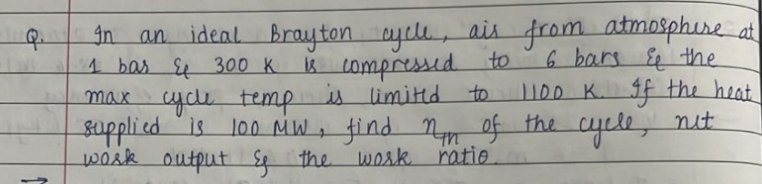 Q. In an ideal Brayton cycle, air from atmosphere at
1 bar & 300 K is compressed to 6 bars & the
max cycle temp is limited to 1100 K. If the heat
supplied is 100 MW, find η_th of the cycle, net
work output & the work ratio.
→